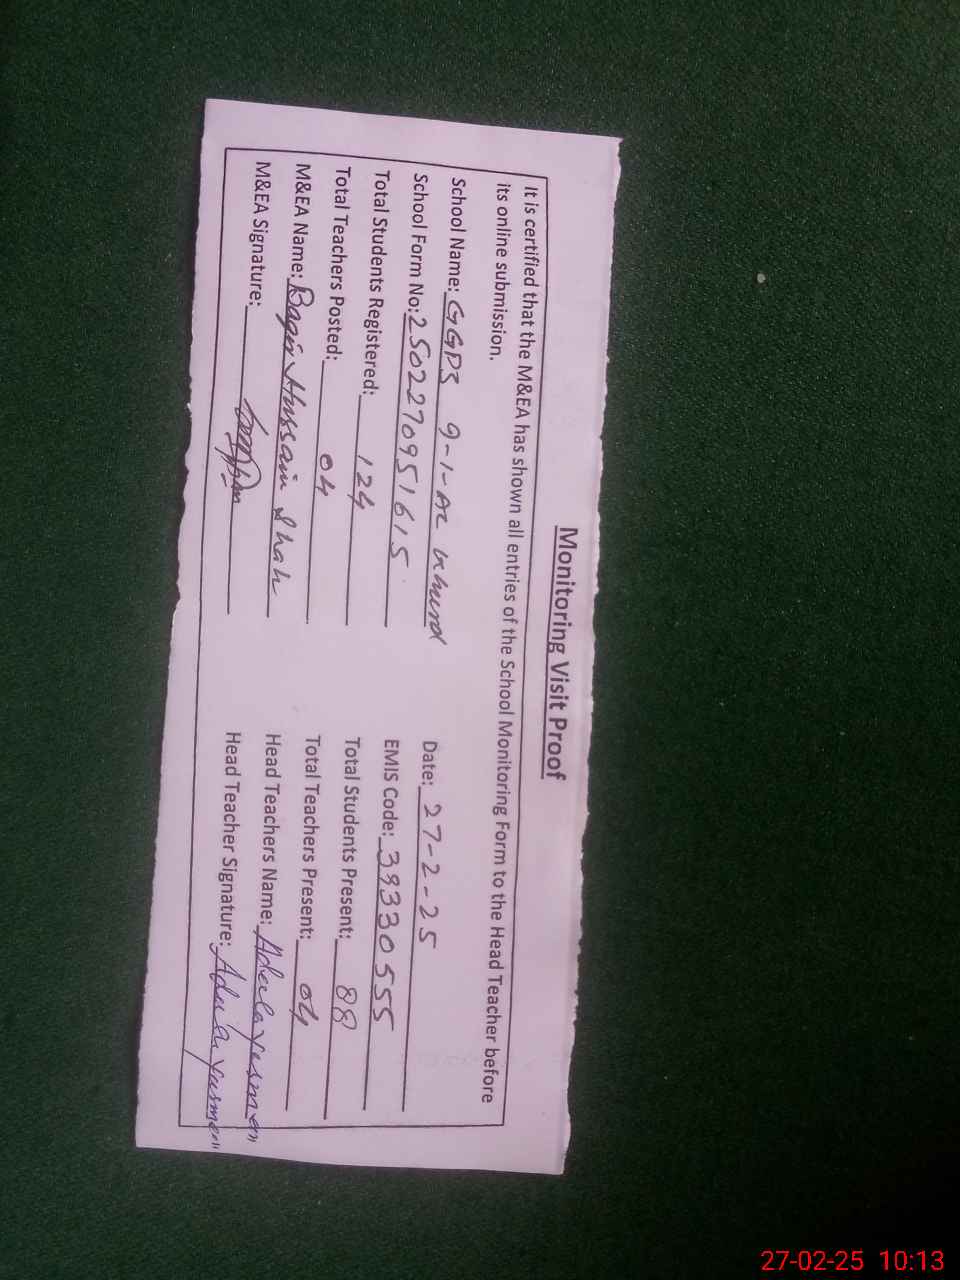 Monitoring Visit Proof
It is certified that the M&EA has shown all entries of the School Monitoring Form to the Head Teacher before
its online submission.
School Name: GGPS 9-1-AL Khurd Date: 27-2-25
School Form No: 2502270951615 EMIS Code: 39330555
Total Students Registered: 124 Total Students Present: 88
Total Teachers Posted: 04 Total Teachers Present: 04
M&EA Name: Baqir Hussain Shah Head Teachers Name: Adeela Yasmeen
M&EA Signature: Head Teacher Signature: Adeela Yasmeen
27-02-25 10:13